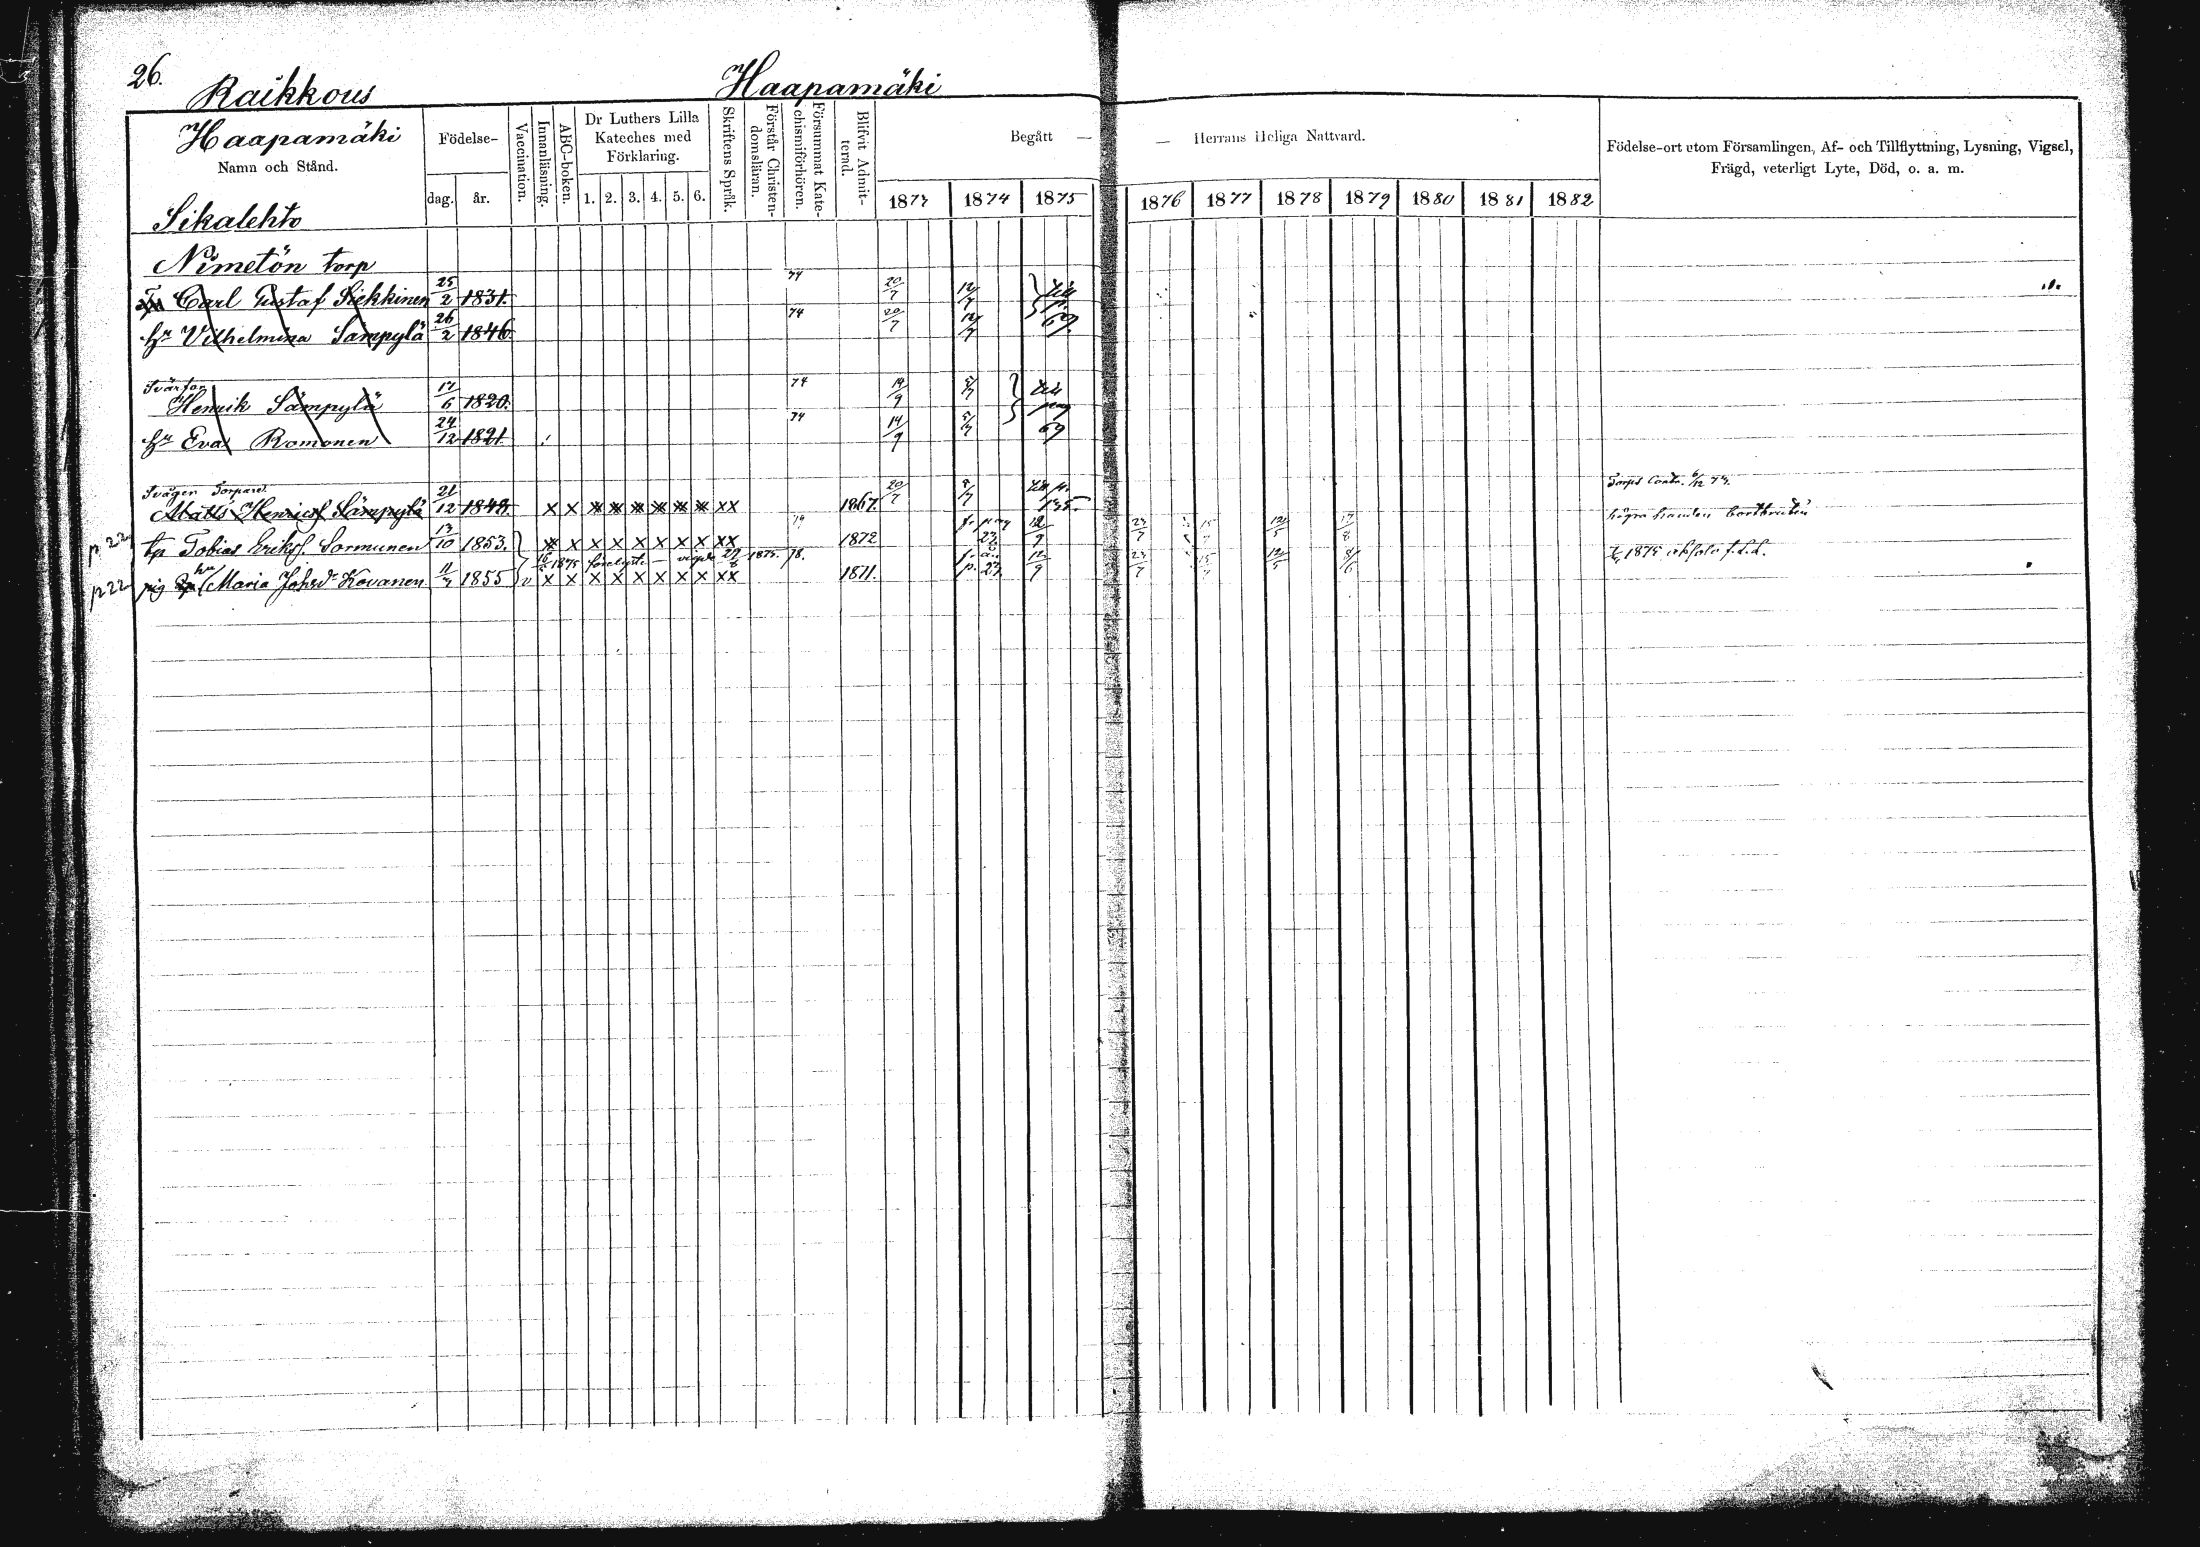 26.
Raikkous Haapamäki
Haapamäki
Namn och Stånd.
Födelse-
dag. år.
Vaccination.
Innanläsning.
ABC-boken.
Dr Luthers Lilla
Kateches med
Förklaring.
1. 2. 3. 4. 5. 6.
Skriftens Språk.
Förstår Christen-
domsläran.
Försummat Kate-
chismiförhören.
Blifvit Admit-
terad.
Begått —
— Herrans Heliga Nattvard.
1873 1874 1875 1876 1877 1878 1879 1880 1881 1882
Födelse-ort utom Församlingen, Af- och Tillflyttning, Lysning, Vigsel,
Frägd, veterligt Lyte, Död, o. a. m.
Sikalehto
Nimetön torp
Carl Gustaf Siekkinen 25/2 1831. 74 20/7 12/7
hu Vilhelmina Sämpylä 26/2 1846. 74 20/7 12/7 69
Svärfar
Henrik Sämpylä 17/6 1820. 74 14/9 5/7
hu Eva Romonen 24/12 1821 74 14/9 5/7 69
Svågern Torpare
Matts Henrics. Sämpylä 21/12 1849. x x x x x x x x xx 1867. 20/7 5/7 135
p. 22 tp Tobias Eriks. Sormunen 13/10 1853. x x x x x x x x xx 74 1872 12/9 23/7 15/7 12/5 17/8 högra handen bortbruten
1875 vigde 1875. 78.
p 22 pig hu Maria Johsdr Kovanen 11/7 1855 v x x x x x x x x xx 1871. p. 23 12/9 23/7 15/7 12/5 8/6 1875